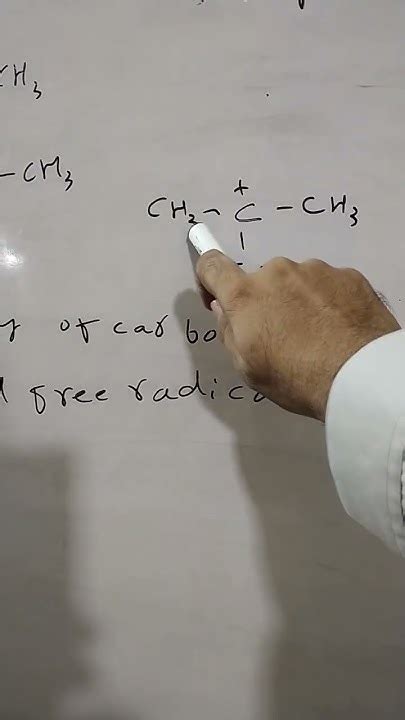 CH₃
–CH₃
+
CH₂ – C – CH₃
|
of carbo
free radica